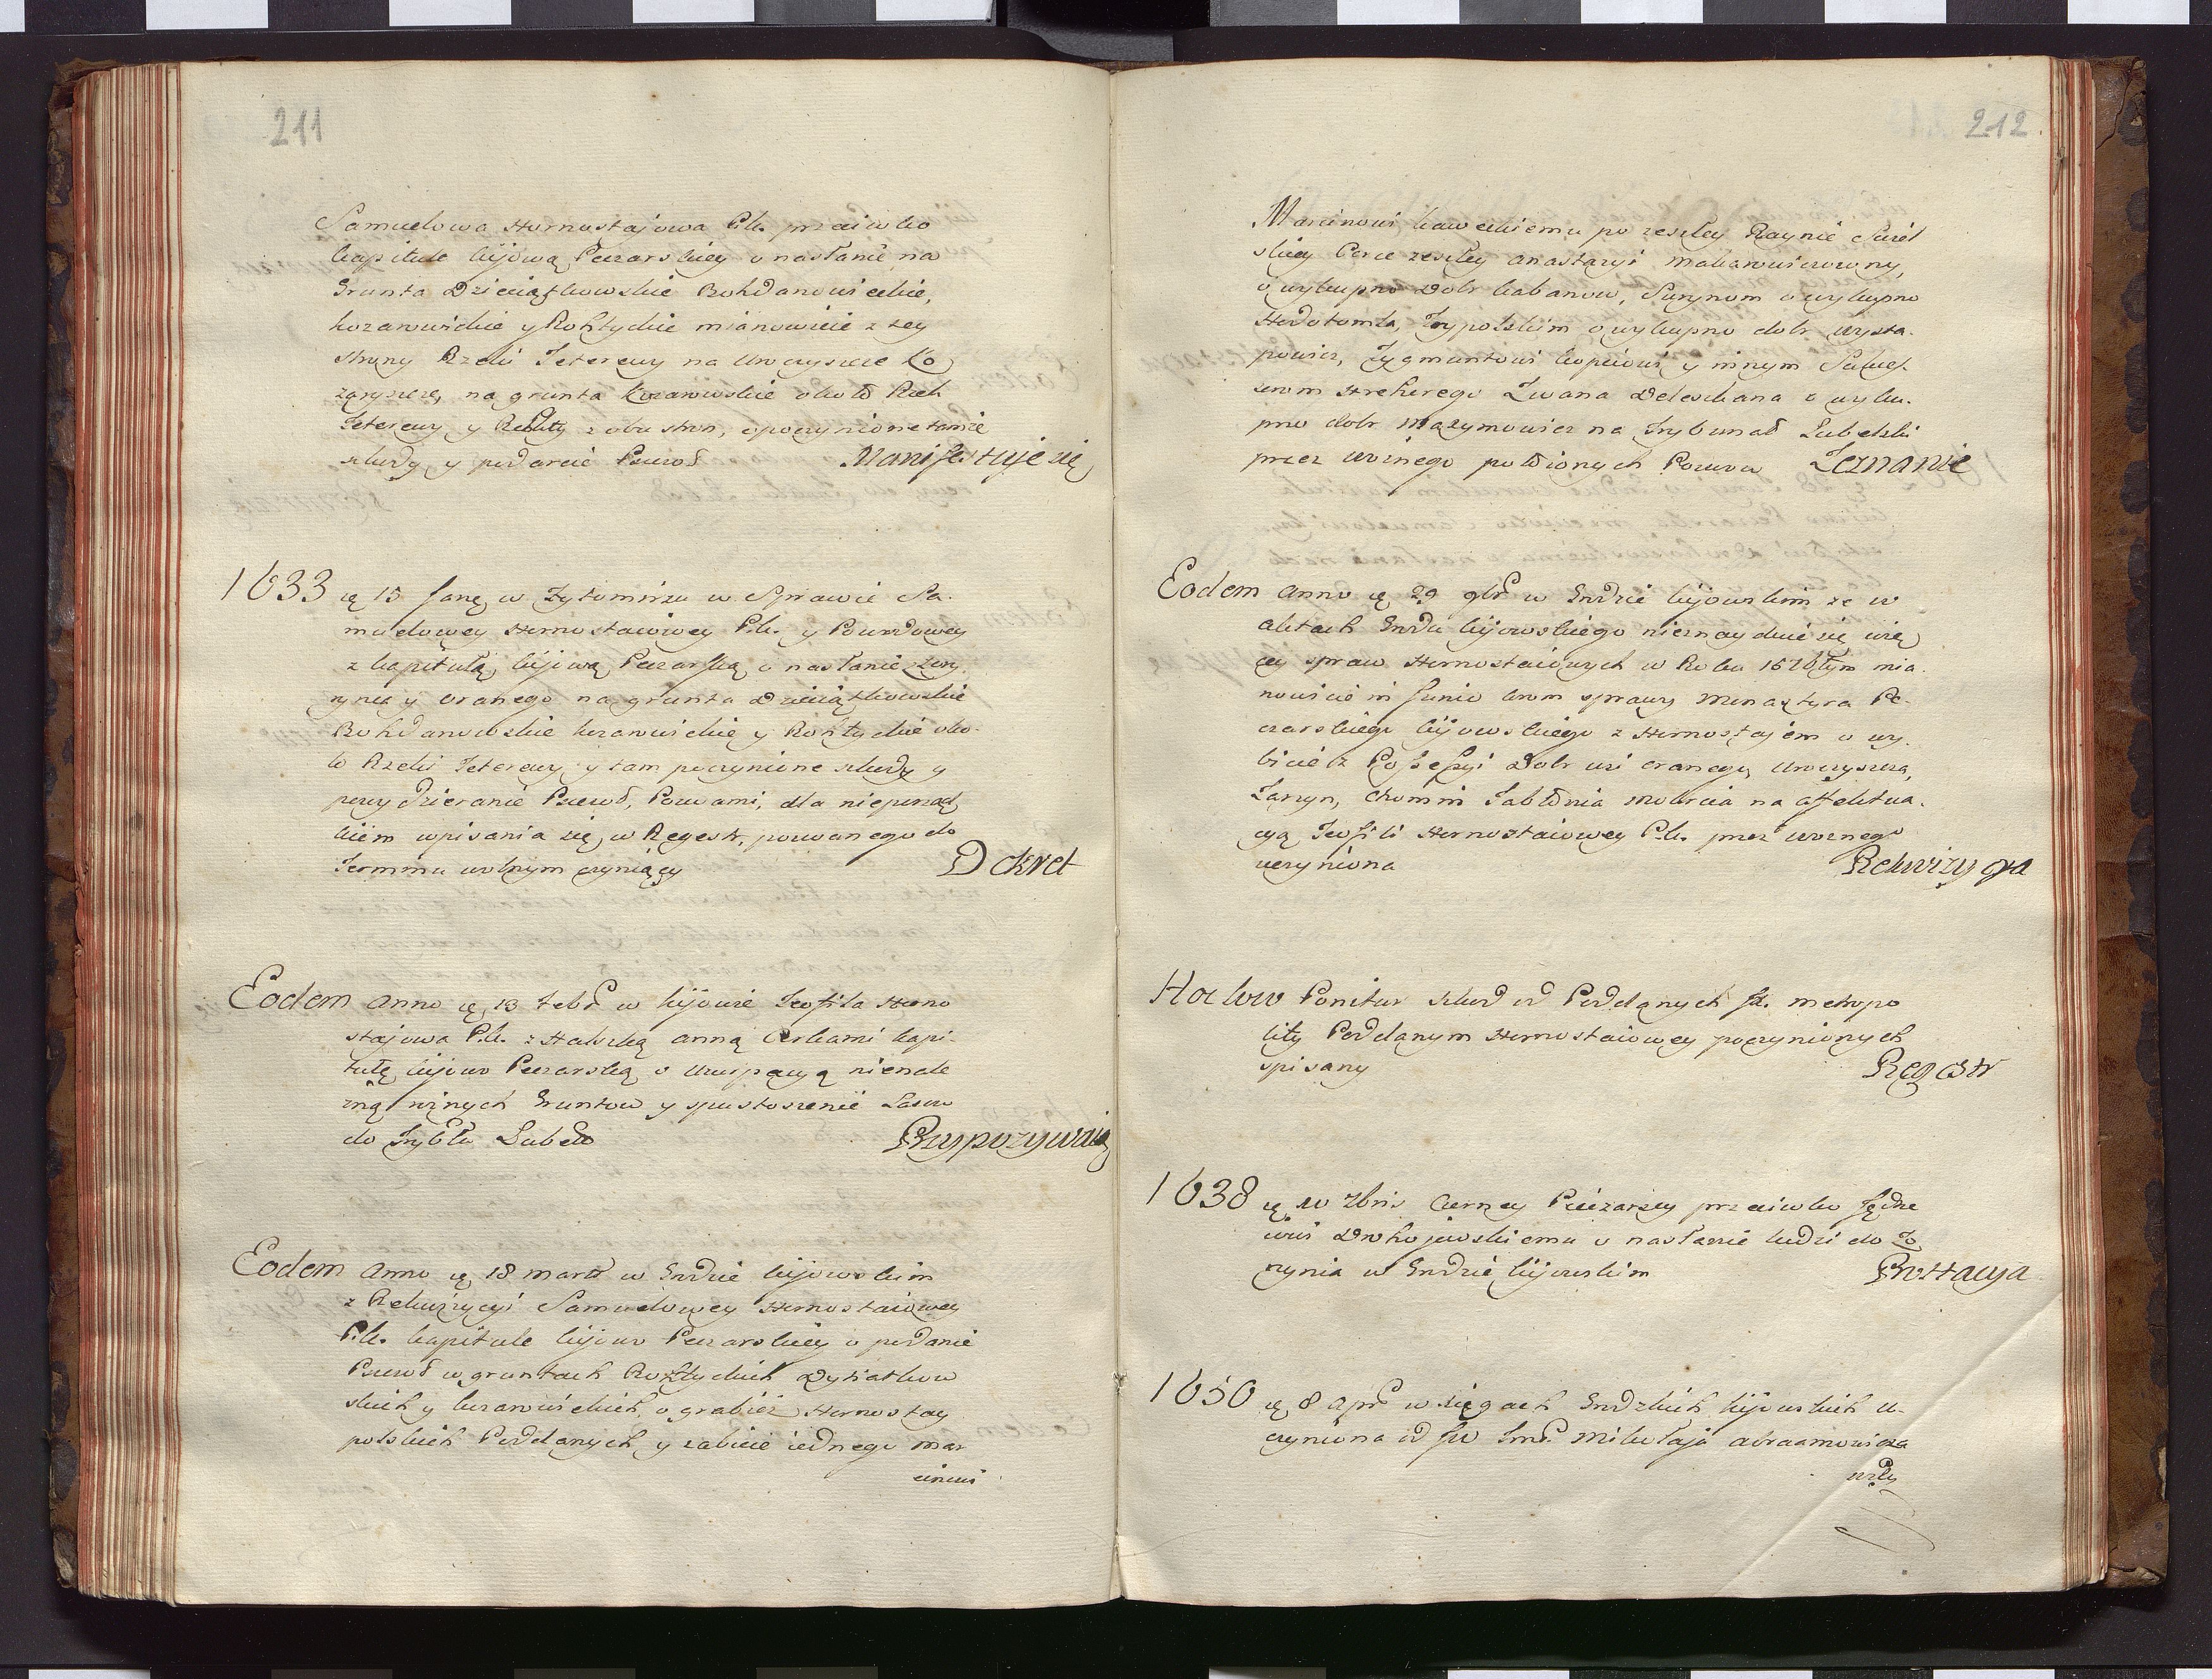 211
Samuelowa Hornostajowa P.k. przeciwko
kapitule kijowa Peczarskiey o nasłanie na
Grunta Dzieciątkowskie Bohdanowickie,
kozarowickie y Rohtyckie mianowicie z tey
strony Rzeki Teterewy na Uroczyscze Ko
zaryszcze, na grunta kozarowskie około Rzek
Teterewy y z obu stron, o poczynione tamże
szkody y podarcie Pszczoł Manifestuje się
1633 ę 15 Jany w Zytomirzu w Sprawie Sa-
muelowey Hornostaiowey P.k. y Powodowey
z kapitułą kijową Peczarską o nasłanie
y oranego na grunta Dzieciątkowskie
Bohdanowskie kozarowickie y Rohtyckie oko-
ło Rzeki Teterewy y tam poczynione szkody y
przy dzieranie Pszczoł, Pozwami, dla nieporząd
kiem wpisania się w Regestr, pozwanego do
Terminu wolnym czyniący Dekret
Eodem anno ę 13 Febr w kijowie Teofila Horno
stajowa P.k. z Halszką anną Corkami kapi-
tułę kijowo Peczarską o Uzurpacyą nienale
żną rożnych Gruntow y spustoszenie Lasow
do Trybłu Lubelo Przypozywaią
Eodem Anno ę 18 marti w Grodzie kijowskim
z Rekwizycyi Samuelowey Hornostaiowey
P.k. kapitule kijowo Peczarskiey o podanie
Pszczoł w gruntach Rohtyckich Dytiatkow
skich y kozarowickich, o grabież Hornostay
polskich Poddanych y zabicie iednego mar
cinowi
212
Marcinowi kaweckiemu po zeszłey Raynie Sciel
skiey Corce zeszłey anastazyi makarowiczowny,
o wykupno Dobr kabanow, Surynom o wykupno
Hodotomla, Trypolskim o wykupno dobr Wysta-
powicz, Zygmuntowi kopciowi y innym Sukces-
sorom Hrehorego Iwana Deleschana o wyku-
pno dobr Mazymowicz na Trybunał Lubelski
przez woznego położonych Pozwow Zeznanie
Eodem Anno ę 29 9br w Grodzie kijowskim ze w
aktach Grodu kijowskiego nieznayduie się wię
cey spraw Hornostaiowych w Roku 1626tym mia-
nowicie in Junio krom sprawy monastyra Pe-
czarskiego kijowskiego z Hornostajem o wy-
bicie z Possessyi Dobr wsi oranego Uroczyscza,
Łazyn, Chomin Jabłonia Mokrcia na affektua-
cyą Teofili Hornostaiowey P.k. przez woznego
uczyniona Rekwizycya
Hoc loco Ponitur szkod od Poddanych Jx. metropo
lity Poddanym Hornostaiowey poczynionych
spisany Regestr
1638 ę 10 Xbris Czerncy Pieczarscy przeciwko Jędrze
iowi Drohojewskiemu o nasłanie ludzi do Zo
rynia w Grodzie kijowskim Protestacya
1650 ę 8 apr w xięgach Grodzkich kijowskich u-
czyniona od Jw Jmc mikołaja abraamowicza